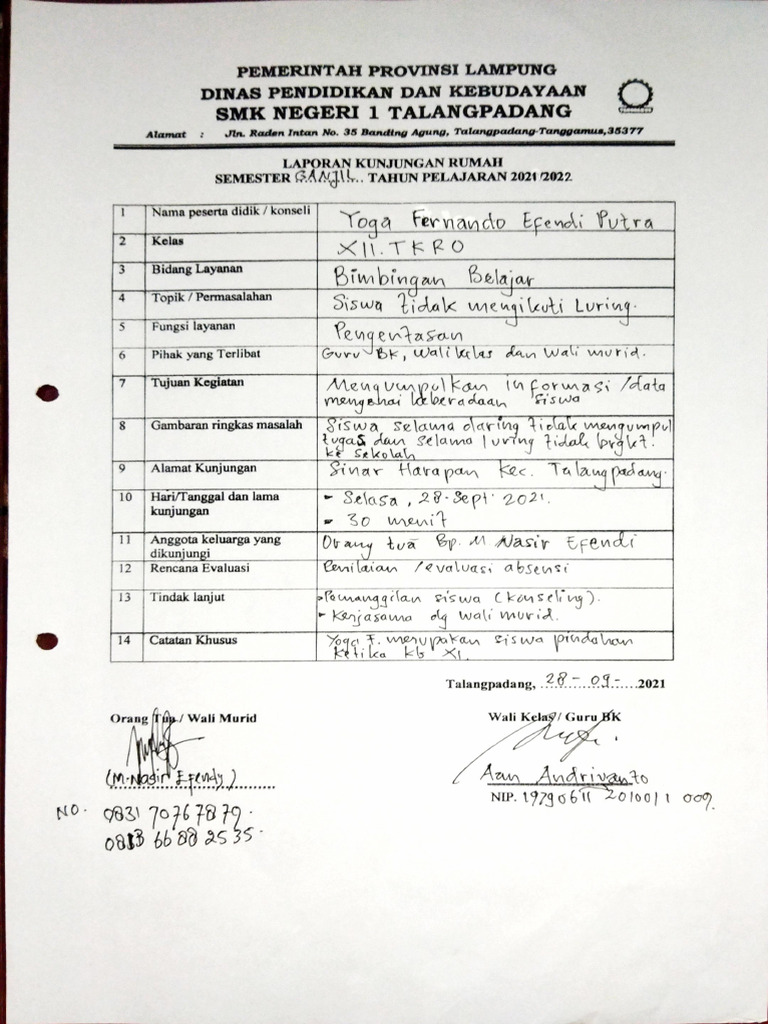 PEMERINTAH PROVINSI LAMPUNG
DINAS PENDIDIKAN DAN KEBUDAYAAN
SMK NEGERI 1 TALANGPADANG
Alamat : Jln. Raden Intan No. 35 Banding Agung, Talangpadang-Tanggamus,35377
LAPORAN KUNJUNGAN RUMAH
SEMESTER GANJIL.. TAHUN PELAJARAN 2021/2022
1 Nama peserta didik / konseli Yoga Fernando Efendi Putra
2 Kelas XII.TKRO
3 Bidang Layanan Bimbingan Belajar
4 Topik / Permasalahan Siswa tidak mengikuti Luring.
5 Fungsi layanan Pengentasan
6 Pihak yang Terlibat Guru BK, Wali kelas dan Wali murid.
7 Tujuan Kegiatan Mengumpulkan informasi /data
mengenai keberadaan siswa
8 Gambaran ringkas masalah Siswa selama daring tidak mengumpul
tugas dan selama luring tidak brgkt.
ke sekolah
9 Alamat Kunjungan Sinar Harapan Kec. Talangpadang.
10 Hari/Tanggal dan lama kunjungan - Selasa, 28-Sept 2021.
- 30 menit
11 Anggota keluarga yang dikunjungi Orang tua Bp. M Nasir Efendi
12 Rencana Evaluasi Penilaian /evaluasi absensi
13 Tindak lanjut - Pemanggilan siswa (konseling).
- Kerjasama dg wali murid.
14 Catatan Khusus Yoga F. merupakan siswa pindahan
ketika kls XI.
Talangpadang, 28-09-.......2021
Orang Tua / Wali Murid Wali Kelas / Guru BK
(M.Nasir Efendy) Aan Andrivanto
NIP. 19790611 201001 1 009.
NO. 0831 7076 7879.
0813 6688 2535.